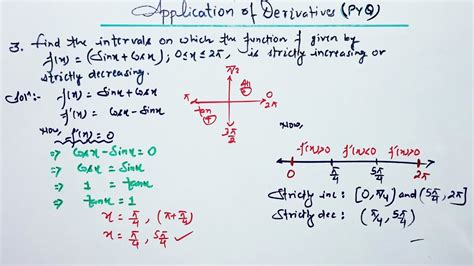 Application of Derivatives (PYQ)
3. find the intervals on which the function f given by
f(x) = (Sinx + Cosx) ; 0 ≤ x ≤ 2π, is strictly increasing or
strictly decreasing.
Solⁿ:- f(x) = Sinx + Cosx
f'(x) = Cosx - Sinx
Now, f'(x) = 0
⇒ Cosx - Sinx = 0
⇒ Cosx = Sinx
⇒ 1 = tanx
⇒ tanx = 1
x = π/4, (π + π/4)
x = π/4, 5π/4 ✓
π/2
All
+
π
0
2π
tan
+
3π/2
Now,
f'(x)>0 f'(x)<0 f'(x)>0
0 π/4 5π/4 2π
Strictly inc : [0, π/4) and (5π/4, 2π]
Strictly dec : (π/4, 5π/4)